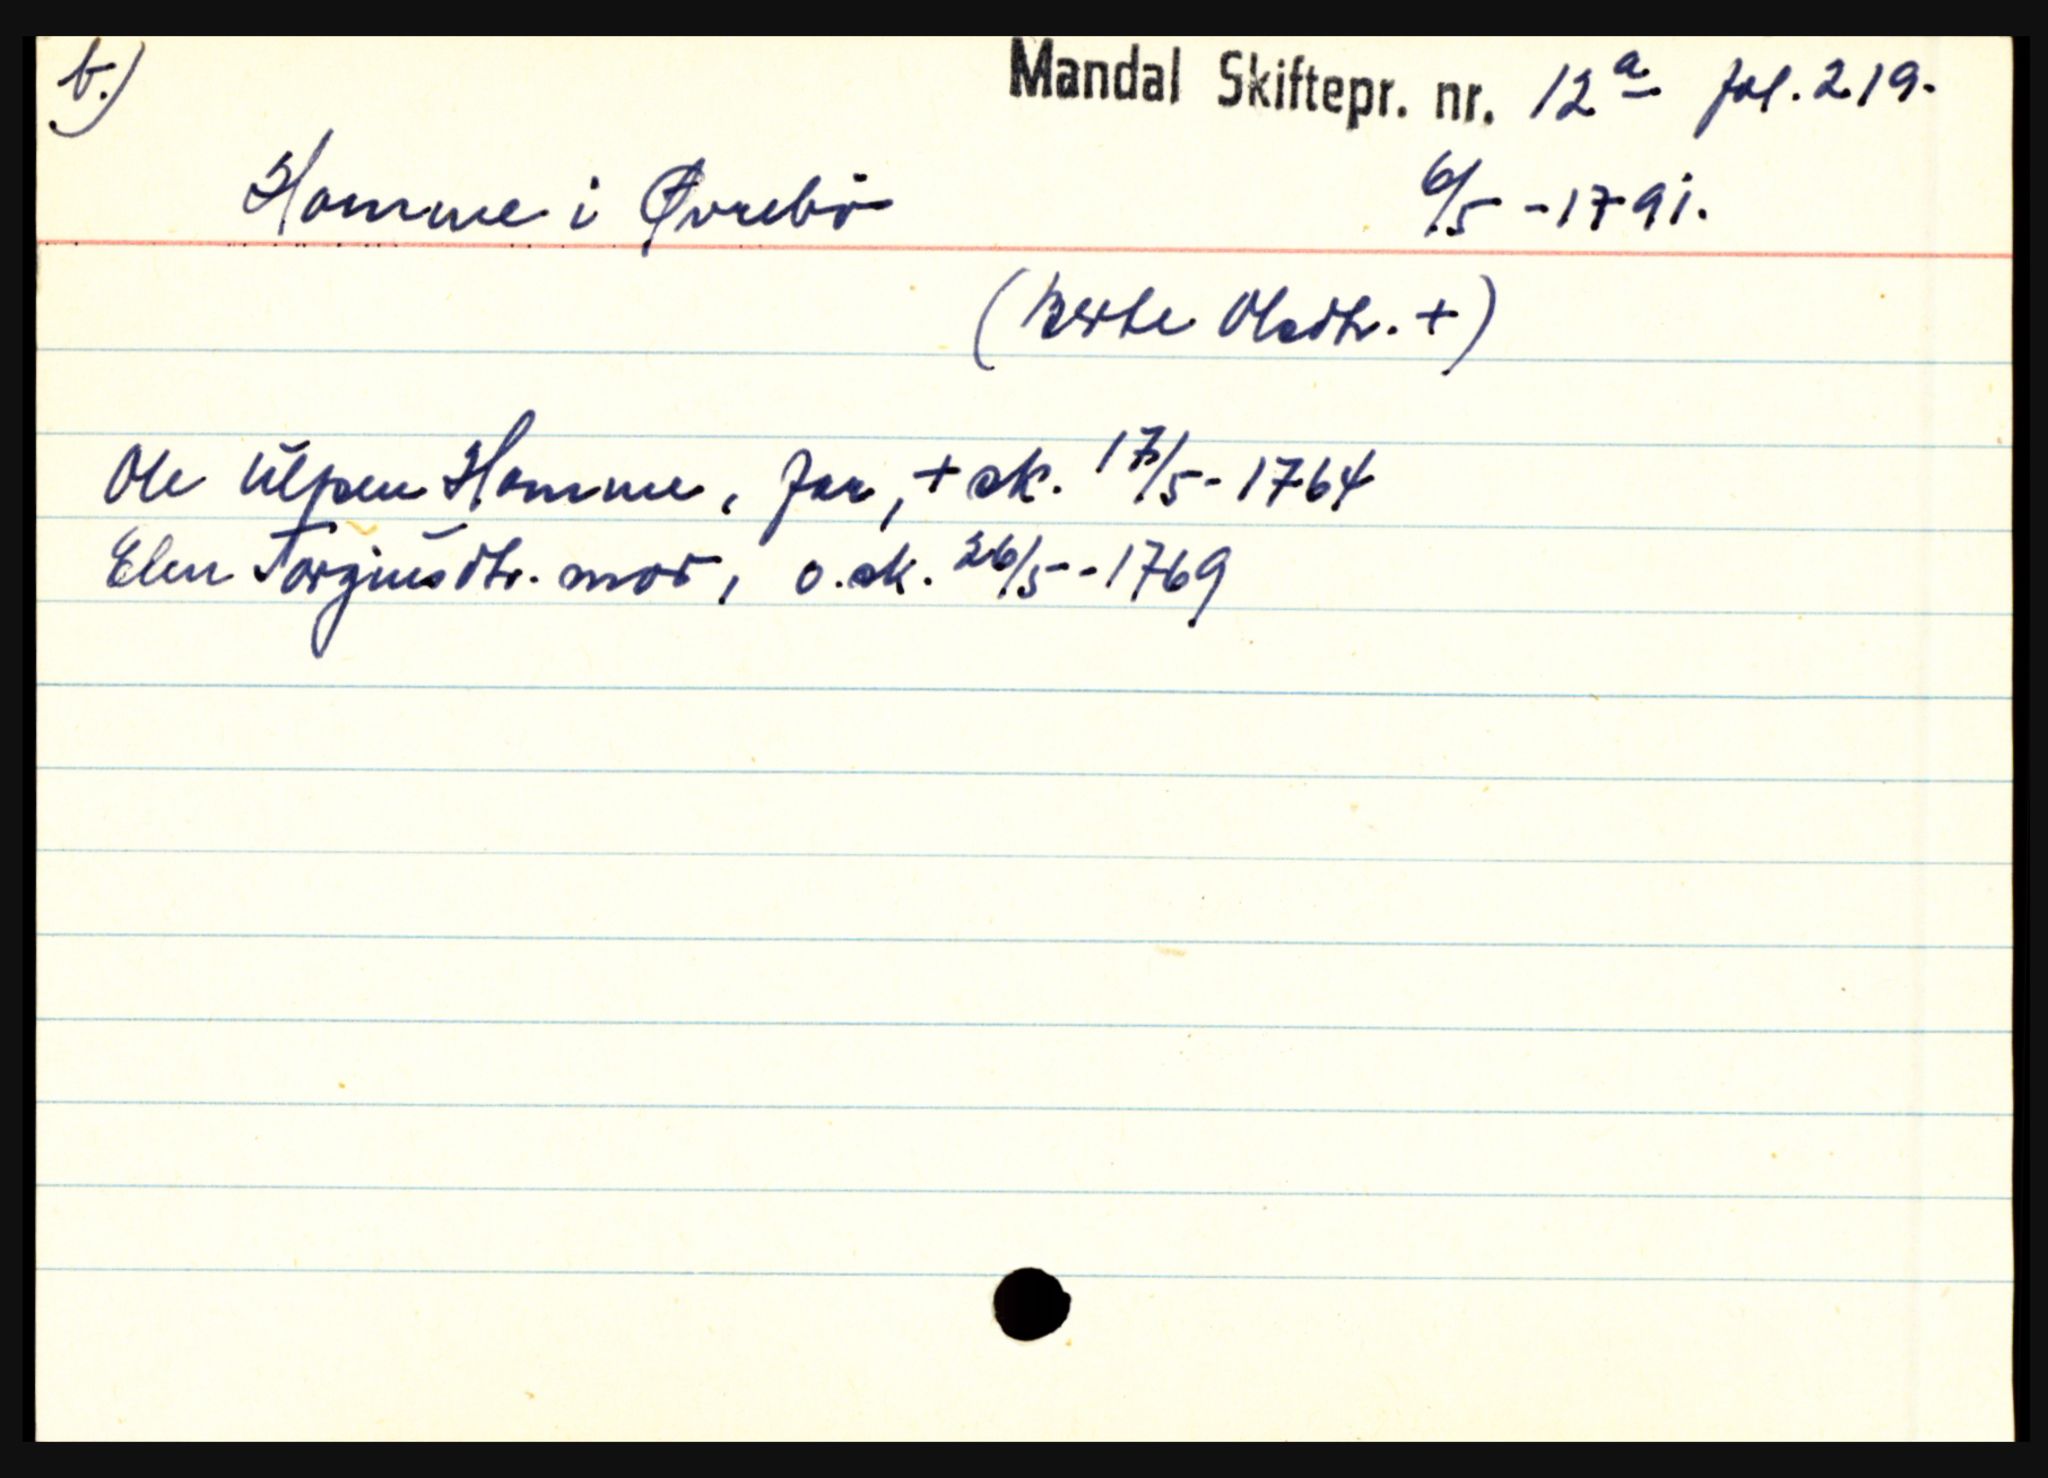 b.) Mandal Skiftepr. nr. 12a fol. 219.
Homme i Øvrebö 6/5 - 1791.
(Berte Olsdtr. +)
Ole Ulpen Homme, far, + sk. 17/5 - 1764
Elen Torgiusdtr. mor, o. sk. 26/5 - 1769